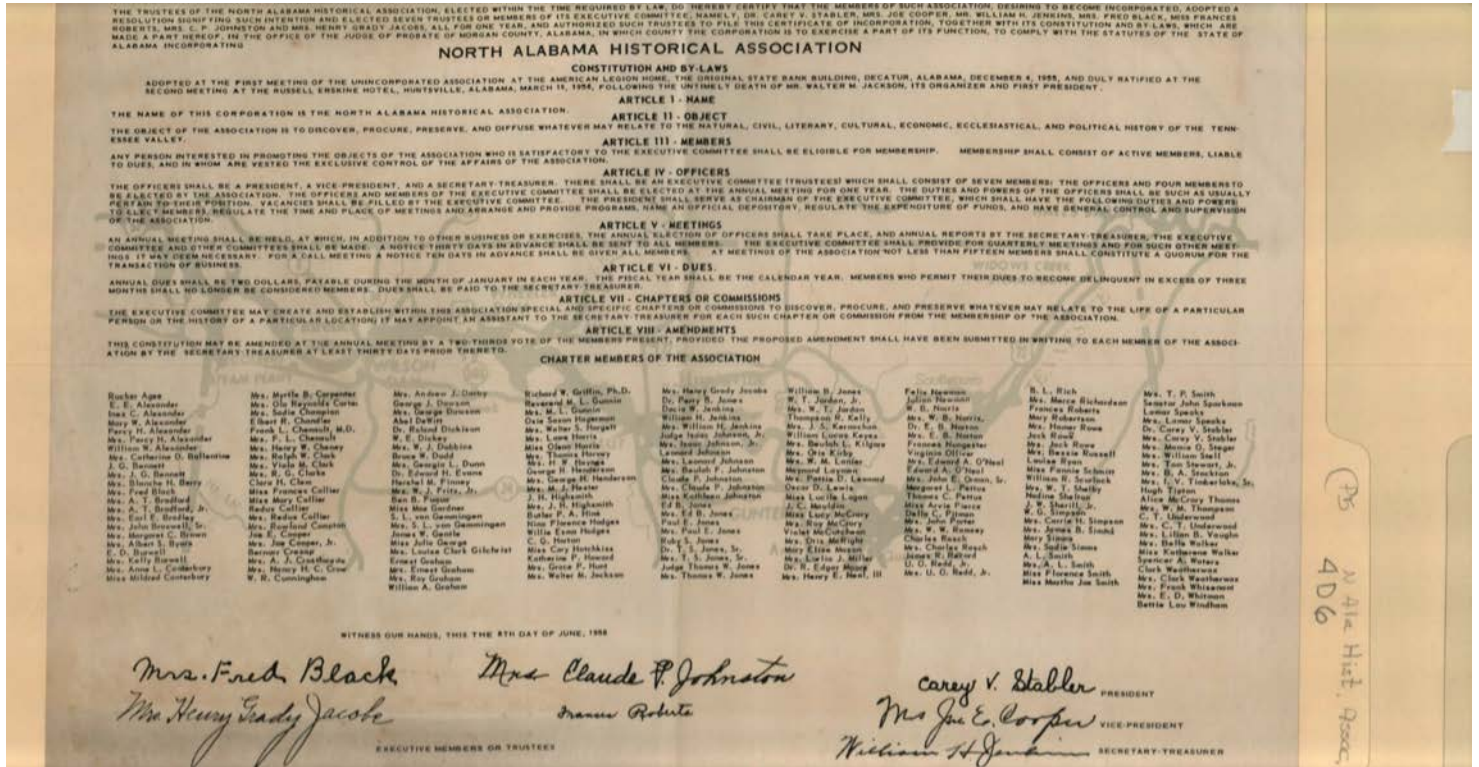 THE TRUSTEES OF THE NORTH ALABAMA HISTORICAL ASSOCIATION, ELECTED WITHIN THE TIME REQUIRED BY LAW, DO HEREBY CERTIFY THAT THE MEMBERS OF SUCH ASSOCIATION, DESIRING TO BECOME INCORPORATED, ADOPTED A
RESOLUTION SIGNIFYING SUCH INTENTION AND ELECTED SEVEN TRUSTEES OR MEMBERS OF ITS EXECUTIVE COMMITTEE, NAMELY, DR. CAREY V. STABLER, MRS. JOE COOPER, MR. WILLIAM H. JENKINS, MRS. FRED BLACK, MISS FRANCES
ROBERTS, MRS. C. P. JOHNSTON AND MRS. HENRY GRADY JACOBS, ALL FOR ONE YEAR, AND AUTHORIZED SUCH TRUSTEES TO FILE THIS CERTIFICATE OF INCORPORATION, TOGETHER WITH ITS CONSTITUTION AND BY-LAWS, WHICH ARE
MADE A PART HEREOF, IN THE OFFICE OF THE JUDGE OF PROBATE OF MORGAN COUNTY, ALABAMA, IN WHICH COUNTY THE CORPORATION IS TO EXERCISE A PART OF ITS FUNCTION, TO COMPLY WITH THE STATUTES OF THE STATE OF
ALABAMA INCORPORATING
NORTH ALABAMA HISTORICAL ASSOCIATION
CONSTITUTION AND BY-LAWS
ADOPTED AT THE FIRST MEETING OF THE UNINCORPORATED ASSOCIATION AT THE AMERICAN LEGION HOME, THE ORIGINAL STATE BANK BUILDING, DECATUR, ALABAMA, DECEMBER 4, 1955, AND DULY RATIFIED AT THE
SECOND MEETING AT THE RUSSELL ERSKINE HOTEL, HUNTSVILLE, ALABAMA, MARCH 1956, FOLLOWING THE UNTIMELY DEATH OF MR. WALTER M. JACKSON, ITS ORGANIZER AND FIRST PRESIDENT.
ARTICLE I - NAME
THE NAME OF THIS CORPORATION IS THE NORTH ALABAMA HISTORICAL ASSOCIATION.
ARTICLE 11 - OBJECT
THE OBJECT OF THE ASSOCIATION IS TO DISCOVER, PROCURE, PRESERVE, AND DIFFUSE WHATEVER MAY RELATE TO THE NATURAL, CIVIL, LITERARY, CULTURAL, ECONOMIC, ECCLESIASTICAL, AND POLITICAL HISTORY OF THE TENN-
ESSEE VALLEY.
ARTICLE 111 - MEMBERS
ANY PERSON INTERESTED IN PROMOTING THE OBJECTS OF THE ASSOCIATION WHO IS SATISFACTORY TO THE EXECUTIVE COMMITTEE SHALL BE ELIGIBLE FOR MEMBERSHIP. MEMBERSHIP SHALL CONSIST OF ACTIVE MEMBERS, LIABLE
TO DUES, AND IN WHOM ARE VESTED THE EXCLUSIVE CONTROL OF THE AFFAIRS OF THE ASSOCIATION.
ARTICLE IV - OFFICERS
THE OFFICERS SHALL BE A PRESIDENT, A VICE-PRESIDENT, AND A SECRETARY-TREASURER. THERE SHALL BE AN EXECUTIVE COMMITTEE (TRUSTEES) WHICH SHALL CONSIST OF SEVEN MEMBERS: THE OFFICERS AND FOUR MEMBERS TO
BE ELECTED BY THE ASSOCIATION. THE OFFICERS AND MEMBERS OF THE EXECUTIVE COMMITTEE SHALL BE ELECTED AT THE ANNUAL MEETING FOR ONE YEAR. THE DUTIES AND POWERS OF THE OFFICERS SHALL BE SUCH AS USUALLY
PERTAIN TO THEIR POSITION. VACANCIES SHALL BE FILLED BY THE EXECUTIVE COMMITTEE. THE PRESIDENT SHALL SERVE AS CHAIRMAN OF THE EXECUTIVE COMMITTEE, WHICH SHALL HAVE THE FOLLOWING DUTIES AND POWERS:
TO ELECT MEMBERS, REGULATE THE TIME AND PLACE OF MEETINGS AND ARRANGE AND PROVIDE PROGRAMS, NAME AN OFFICIAL DEPOSITORY, REGULATE THE EXPENDITURE OF FUNDS, AND HAVE GENERAL CONTROL AND SUPERVISION
OF THE ASSOCIATION.
ARTICLE V - MEETINGS
AN ANNUAL MEETING SHALL BE HELD, AT WHICH, IN ADDITION TO OTHER BUSINESS OR EXERCISES, THE ANNUAL ELECTION OF OFFICERS SHALL TAKE PLACE, AND ANNUAL REPORTS BY THE SECRETARY-TREASURER, THE EXECUTIVE
COMMITTEE AND OTHER COMMITTEES SHALL BE MADE. A NOTICE THIRTY DAYS IN ADVANCE SHALL BE SENT TO ALL MEMBERS. THE EXECUTIVE COMMITTEE SHALL PROVIDE FOR QUARTERLY MEETINGS AND FOR SUCH OTHER MEET-
INGS IT MAY DEEM NECESSARY. FOR A CALL MEETING A NOTICE TEN DAYS IN ADVANCE SHALL BE GIVEN ALL MEMBERS. AT MEETINGS OF THE ASSOCIATION NOT LESS THAN FIFTEEN MEMBERS SHALL CONSTITUTE A QUORUM FOR THE
TRANSACTION OF BUSINESS.
ARTICLE VI - DUES
WIDOWS CREEK
ANNUAL DUES SHALL BE TWO DOLLARS, PAYABLE DURING THE MONTH OF JANUARY IN EACH YEAR. THE FISCAL YEAR SHALL BE THE CALENDAR YEAR. MEMBERS WHO PERMIT THEIR DUES TO BECOME DELINQUENT IN EXCESS OF THREE
MONTHS SHALL NO LONGER BE CONSIDERED MEMBERS. DUES SHALL BE PAID TO THE SECRETARY-TREASURER.
ARTICLE VII - CHAPTERS OR COMMISSIONS
THE EXECUTIVE COMMITTEE MAY CREATE AND ESTABLISH WITHIN THIS ASSOCIATION SPECIAL AND SPECIFIC CHAPTERS OR COMMISSIONS TO DISCOVER, PROCURE, AND PRESERVE WHATEVER MAY RELATE TO THE LIFE OF A PARTICULAR
PERSON OR THE HISTORY OF A PARTICULAR LOCATION; IT MAY APPOINT AN ASSISTANT TO THE SECRETARY-TREASURER FOR EACH SUCH CHAPTER OR COMMISSION FROM THE MEMBERSHIP OF THE ASSOCIATION.
ARTICLE VIII - AMENDMENTS
THIS CONSTITUTION MAY BE AMENDED AT THE ANNUAL MEETING BY A TWO-THIRDS VOTE OF THE MEMBERS PRESENT, PROVIDED THE PROPOSED AMENDMENT SHALL HAVE BEEN SUBMITTED IN WRITING TO EACH MEMBER OF THE ASSOCI-
ATION BY THE SECRETARY-TREASURER AT LEAST THIRTY DAYS PRIOR THERETO.
CHARTER MEMBERS OF THE ASSOCIATION
Rucker Agee
E. E. Alexander
Inez C. Alexander
Mary W. Alexander
Percy H. Alexander
Mrs. Percy H. Alexander
William W. Alexander
Mrs. Catherine D. Ballentine
J. G. Bennett
Mrs. J. G. Bennett
Mrs. Blanche H. Berry
Mrs. Fred Black
Mrs. A. T. Bradford
Mrs. A. T. Bradford, Jr.
Mrs. Earl E. Bradley
Mrs. John Braswell, Sr.
Mrs. Margaret C. Brown
Mrs. Albert S. Byars
E. D. Burwell
Mrs. Kelly Burwell
Mrs. Anne L. Canterbury
Miss Mildred Canterbury
Mrs. Myrtle B. Carpenter
Mrs. Ola Reynolds Carter
Mrs. Sadie Champion
Elbert R. Chandler
Frank L. Chenault, M.D.
Mrs. F. L. Chenault
Mrs. Henry W. Chaney
Mrs. Ralph W. Clark
Mrs. Viola M. Clark
Mrs. R. G. Clarke
Clara H. Clem
Miss Frances Collier
Miss Mary Collier
Redus Collier
Mrs. Redus Collier
Mrs. Rowland Compton
Joe E. Cooper
Mrs. Joe Cooper, Jr.
Bernarr Cresap
Mrs. A. J. Crosthwaite
Mrs. Nancy H. C. Crow
W. R. Cunningham
Mrs. Andrew J. Darby
George J. Dawson
Mrs. George Dawson
Abel DeWitt
Dr. Roland Dickison
W. E. Dickey
Mrs. W. J. Dobbins
Bruce W. Dodd
Mrs. Georgia L. Dunn
Dr. Edward H. Evans
Hershel M. Finney
Mrs. W. J. Fritz, Jr.
Ben B. Fuqua
Miss Mae Gardner
S. L. von Gemmingen
Mrs. S. L. von Gemmingen
James W. Gentle
Miss Julie George
Mrs. Louise Clark Gilchrist
Ernest Graham
Mrs. Ernest Graham
Mrs. Ray Graham
William A. Graham
Richard W. Griffin, Ph.D.
Reverend M. L. Gunnin
Mrs. M. L. Gunnin
Osie Saxon Hagerman
Mrs. Walter S. Hargett
Mrs. Lowe Harris
Miss Olenn Harris
Mrs. Thomas Harvey
Mrs. H. W. Haynes
George H. Henderson
Mrs. George H. Henderson
Mrs. M. J. Hester
J. H. Highsmith
Mrs. J. H. Highsmith
Butler P. A. Hine
Nina Florence Hodges
Willie Esma Hodges
C. D. Horton
Miss Cary Hotchkiss
Katherine P. Howard
Mrs. Grace P. Hunt
Mrs. Walter M. Jackson
Mrs. Henry Grady Jacobs
Dr. Parry B. Jones
Docia W. Jenkins
William H. Jenkins
Mrs. William H. Jenkins
Judge Isaac Johnson, Jr.
Mrs. Isaac Johnson, Jr.
Leonard Johnson
Mrs. Leonard Johnson
Mrs. Beulah F. Johnston
Claude P. Johnston
Mrs. Claude P. Johnston
Miss Kathleen Johnston
Ed B. Jones
Mrs. Ed B. Jones
Paul E. Jones
Mrs. Paul E. Jones
Ruby S. Jones
Dr. T. S. Jones, Sr.
Mrs. T. S. Jones, Sr.
Judge Thomas W. Jones
Mrs. Thomas W. Jones
William B. Jones
W. T. Jordan, Jr.
Mrs. W. T. Jordan
Thompson R. Kelly
Mrs. J. S. Kernachan
William Lucas Keyes
Mrs. Beulah L. Kilgore
Mrs. Otis Kirby
Mrs. W. M. Lanier
Maynard Layman
Mrs. Pattie D. Leonard
Oscar D. Lewis
Miss Lucile Logan
J. C. Mauldin
Miss Lucy McCrary
Mrs. Roy McCrary
Violet McCutcheon
Mrs. Oris McRight
Mary Elizs Mason
Mrs. Lucie J. Miller
Dr. R. Edger Moore
Mrs. Henry E. Neal, III
Felix Newman
Julian Newman
W. B. Norris
Mrs. W. B. Norris
Dr. E. B. Norton
Mrs. E. B. Norton
Frances Nungester
Virginia Olliver
Mrs. Edward A. O'Neal
Edward A. O'Neal
Mrs. John E. Orman, Sr.
Margaret L. Pettus
Thomas C. Pettus
Miss Arvie Pierce
Della C. Pitman
Mrs. John Porter
Mrs. W. W. Ramsey
Charles Rasch
Mrs. Charles Rasch
James R. Record
U. O. Redd, Jr.
Mrs. U. O. Redd, Jr.
B. L. Rich
Mrs. Merce Richardson
Frances Roberts
Mary Robertson
Mrs. Homer Rowe
Jack Rowe
Mrs. Jack Rowe
Mrs. Bessie Russell
Louise Ryan
Miss Fannie Schmitt
William R. Scurlock
Mrs. W. T. Shelby
Nadine Shelton
J. W. Sherill, Jr.
W. G. Simpson
Mrs. Carrie H. Simpson
Mrs. James B. Simms
Mary Simms
Mrs. Sadie Simms
A. L. Smith
Mrs. A. L. Smith
Miss Florence Smith
Miss Martha Jae Smith
Mrs. T. P. Smith
Senator John Sparkman
Lamar Speaks
Mrs. Lamar Speaks
Dr. Carey V. Stabler
Mrs. Carey V. Stabler
Mrs. Mamie O. Steger
William Stell
Mrs. Tom Stewart, Jr.
Mrs. B. A. Stockton
Mrs. I. V. Timberlake, Sr.
Hugh Tipton
Alice McCrary Thomas
Mrs. W. M. Thompson
C. T. Underwood
Mrs. C. T. Underwood
Mrs. Lillian B. Vaughn
Mrs. Belle Walker
Miss Katherene Walker
Spencer A. Waters
Clark Weatherwax
Mrs. Clark Weatherwax
Mrs. Frank Whisenant
Mrs. E. D. Whitman
Bettie Lou Windham
WILSON
GUNTER
WITNESS OUR HANDS, THIS THE 8TH DAY OF JUNE, 1956
Mrs. Fred Black
Mrs Claude P. Johnston
Carey V. Stabler PRESIDENT
Mrs Henry Grady Jacobs
Frances Roberts
Mrs Joe E. Cooper VICE-PRESIDENT
EXECUTIVE MEMBERS OR TRUSTEES
William H. Jenkins SECRETARY-TREASURER
N Ala Hist. Assoc.
4D6